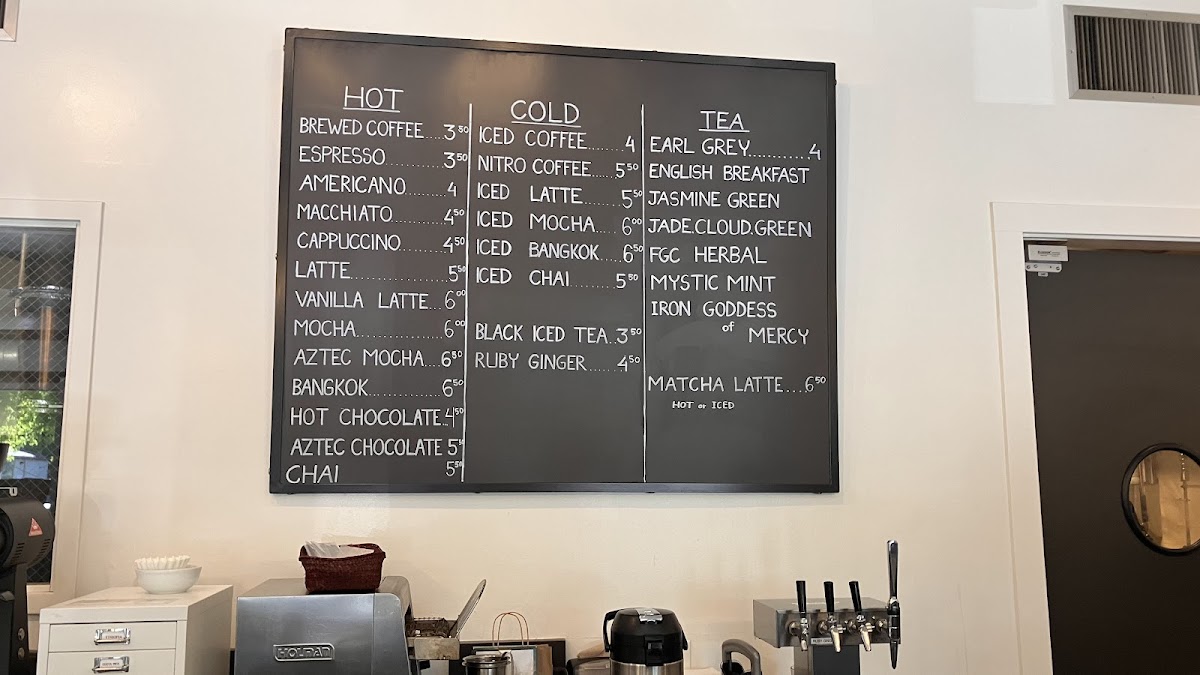 HOT
BREWED COFFEE....3⁵⁰
ESPRESSO..........3⁵⁰
AMERICANO.......4
MACCHIATO........4⁵⁰
CAPPUCCINO.......4⁵⁰
LATTE................5⁵⁰
VANILLA LATTE...6⁰⁰
MOCHA..............6⁰⁰
AZTEC MOCHA....6⁵⁰
BANGKOK............6⁵⁰
HOT CHOCOLATE..4⁵⁰
AZTEC CHOCOLATE 5⁵⁰
CHAI 5⁵⁰
COLD
ICED COFFEE.......4
NITRO COFFEE.....5⁵⁰
ICED LATTE.......5⁵⁰
ICED MOCHA.....6⁰⁰
ICED BANGKOK....6⁵⁰
ICED CHAI.........5⁵⁰
BLACK ICED TEA..3⁵⁰
RUBY GINGER......4⁵⁰
TEA
EARL GREY...........4
ENGLISH BREAKFAST
JASMINE GREEN
JADE.CLOUD.GREEN
FGC HERBAL
MYSTIC MINT
IRON GODDESS
of MERCY
MATCHA LATTE...6⁵⁰
HOT or ICED
HOLMAN